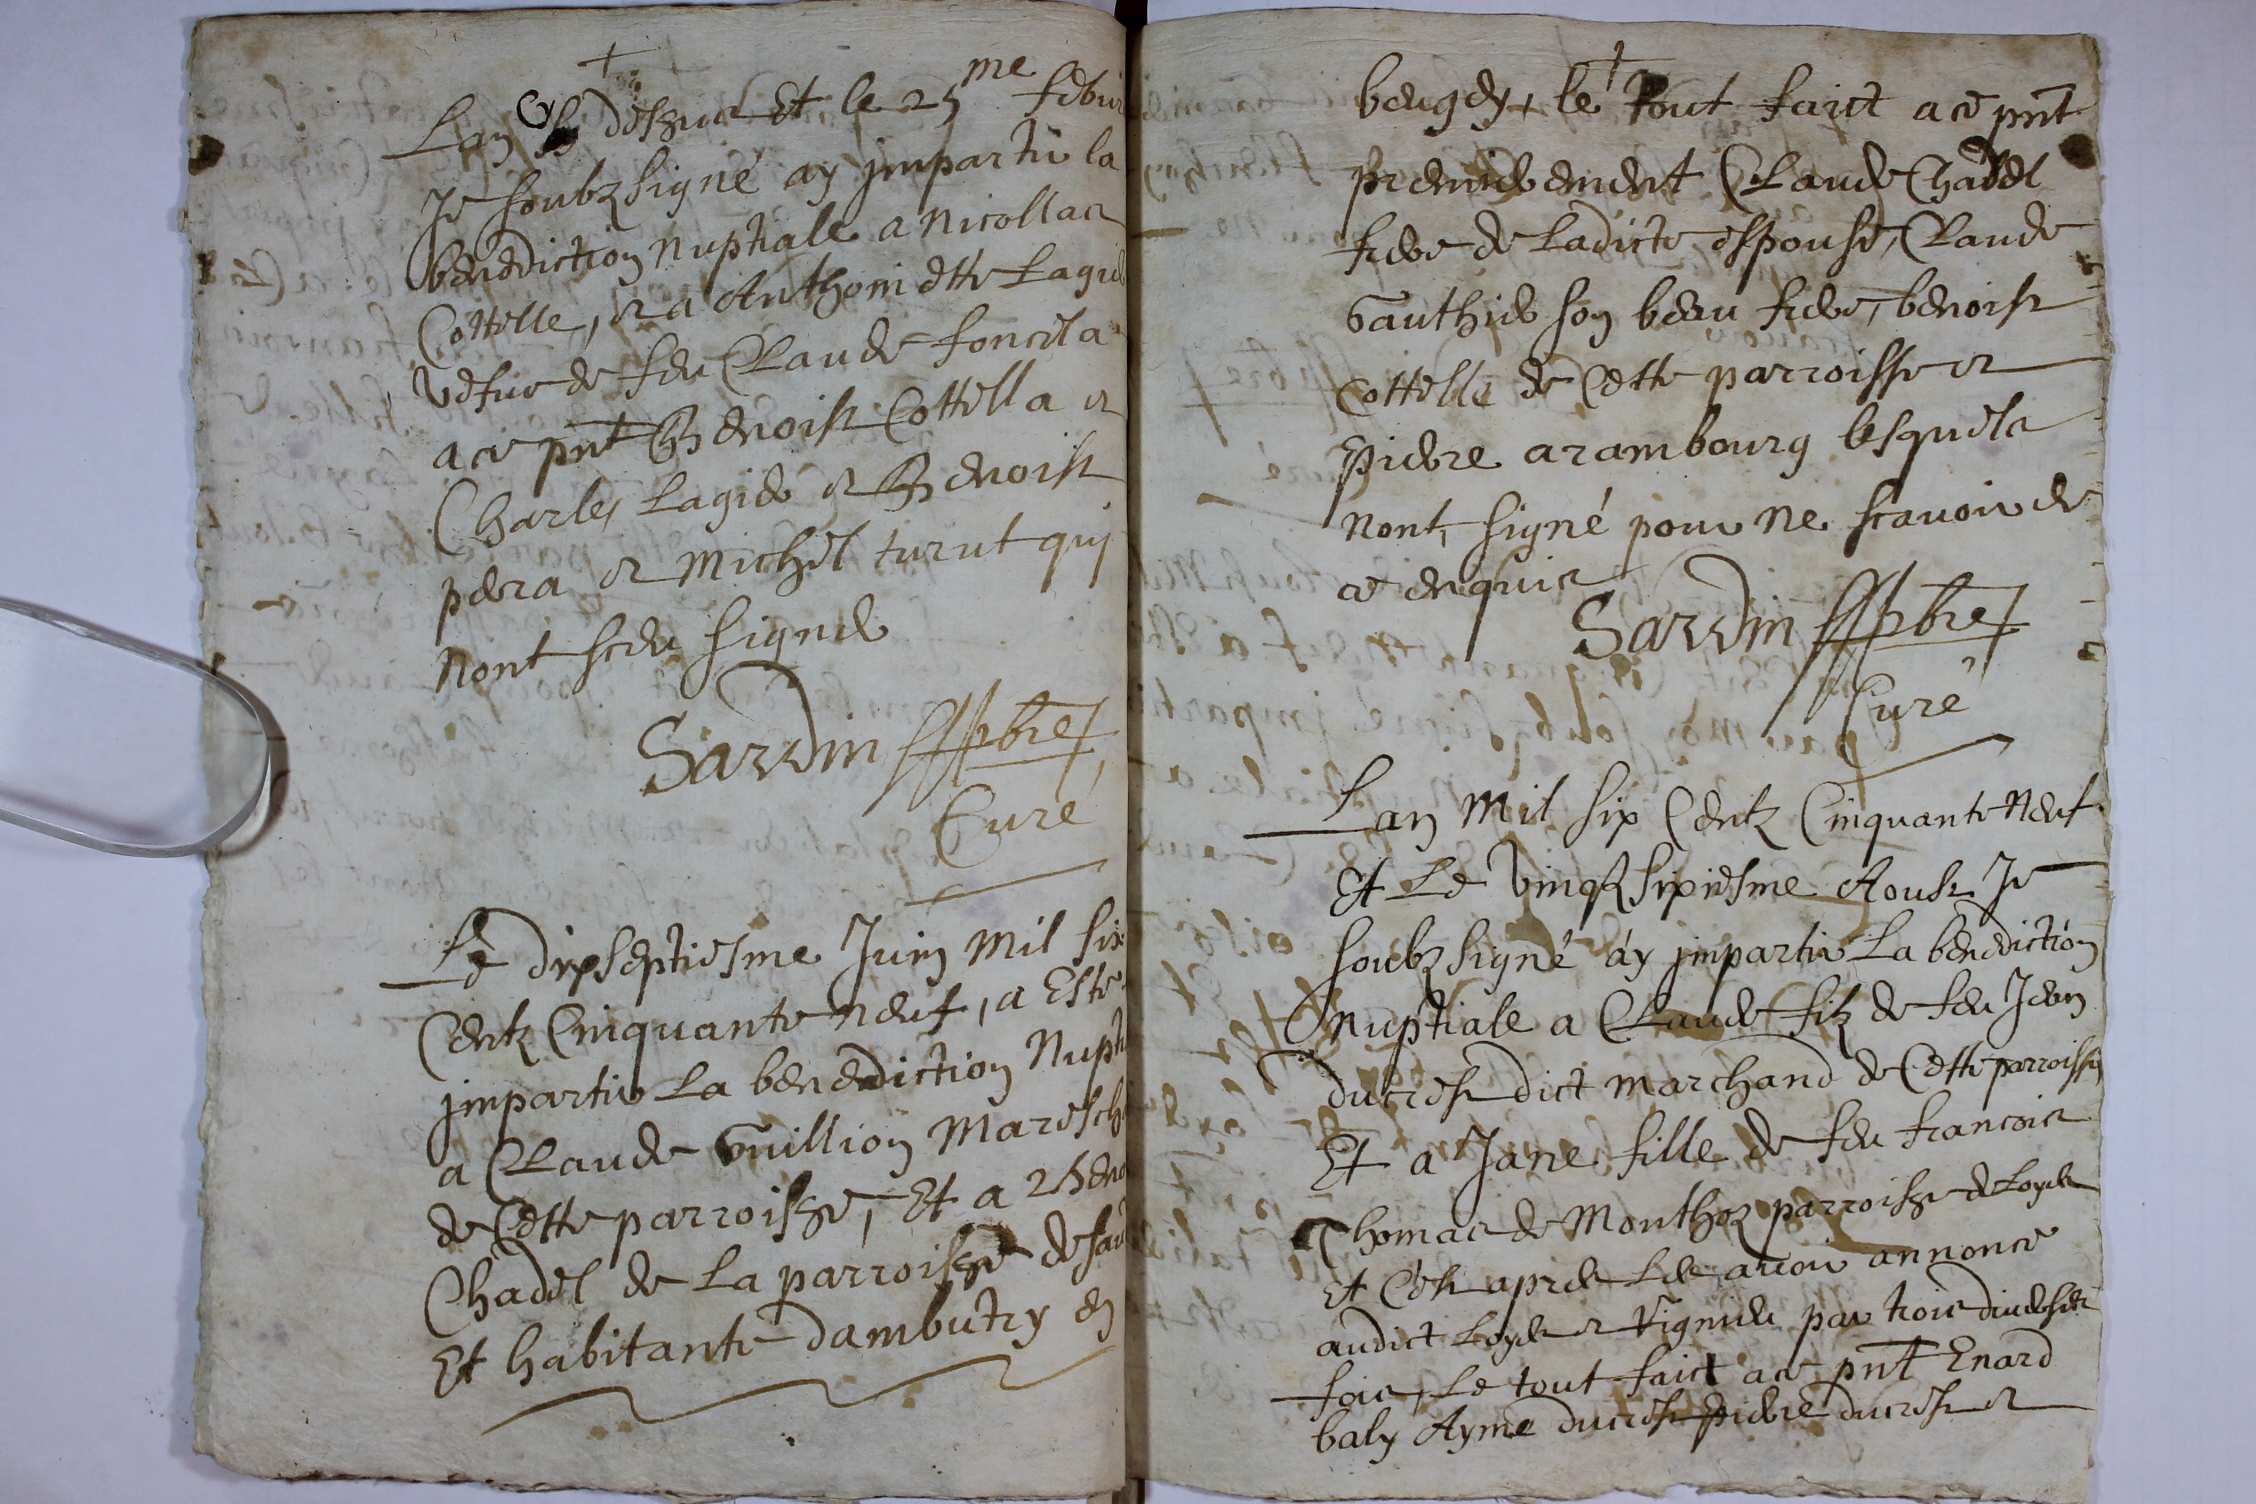 Lan Cy dessus Et le 25me febur
Je soubzsigné ay jmpartir la
benediction nuptiale a Nicollas
Cottelle, et a Anthoniette Lagie
vefue de feu Claude
a ce pnt Benoist Cottella et
Charles Lagier et Benoist
pera et Michel turut qui
nont sceu signer
Sardin pbre
Curé
Le dixseptiesme Juin mil six
Centz Cinquante neuf, a Esté
jmpartir La benediction Nupti
a Claude Guillion Maresch
de Cette parroisse, Et a
Chadel de La parroisse de
Et habitante dambutry en
beugey, le tout faict a ce pnt
premierement Claude Chadel
frere de Ladicte espouse, Claude
Gauthier son beau frere, benoist
Cottelle de Cette parroisse et
Pierre arambourg lesquels
nont signé pour ne scauoir de
ce enquis
Sardin pbre
Curé
Lan mil six Centz Cinquante neuf
Et Le vingt sixiesme Aoust Je
soubzsigné ay jmpartir La benediction
nuptiale a Claude filz de feu Jean
ducrest dict marchand de Cette parroisse
Et a Jane fille de feu francois
Thomas de Monthoz parroisse de Loyes
Et Cest apres Les auoir annoncé
audict Loyes et Vignieu par trois diuerses
fois, Le tout faict a ce pnt Enard
baly Ayme ducrest pierre ducrest et